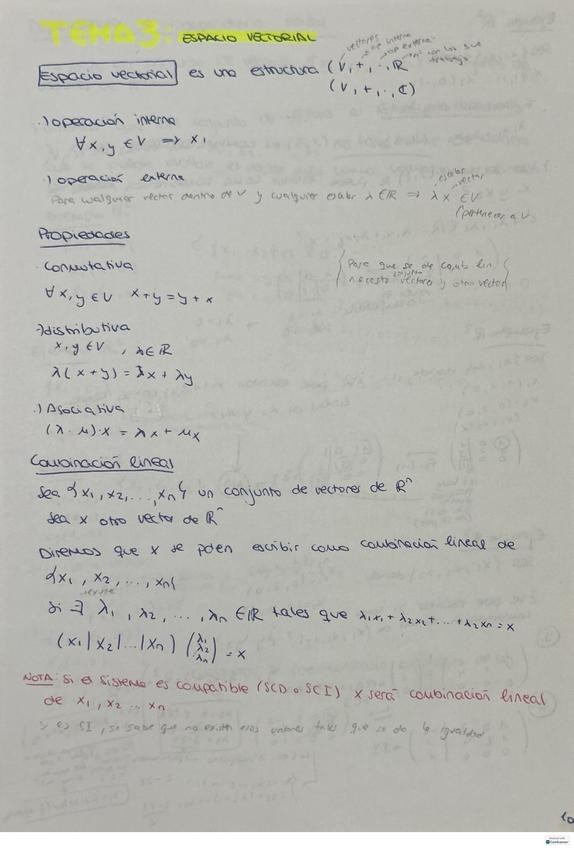 TEMA 3: ESPACIO VECTORIAL
vectores
op interna
op externa
Espacio vectorial es una estructura (V, +, ·, ℝ
con los que trabajo
(V, +, ·, ℂ)
·) operación interna
∀x, y ∈ V ⇒ x,
·) operación externa
Para cualquier vector dentro de V y cualquier escalar λ ∈ ℝ ⇒ λx ∈ V
escalar
vector
(pertenece a V
Propiedades
· Conmutativa
∀x, y ∈ V x+y = y+x
Para que se de comb lin
necesito conjunto vectores y otro vector
·) distributiva
x, y ∈ V, λ ∈ ℝ
λ(x+y) = λx + λy
·) Asociativa
(λ·μ)·x = λx + μx
Combinación lineal
Sea {x1, x2, ..., xn} un conjunto de vectores de ℝⁿ
Sea x otro vector de ℝⁿ
Diremos que x se puede escribir como combinación lineal de
{x1, x2, ..., xn}
existe
Si ∃ λ1, λ2, ..., λn ∈ ℝ tales que λ1x1 + λ2x2 + ... + λ2xn = x
(x1 | x2 | ... | xn) (λ1 λ2 λn) = x
NOTA: Si el sistema es compatible (SCD o SCI) x será combinación lineal
de x1, x2 ... xn
Si es SI, se sabe que no existen esos valores tales que se da la igualdad
10